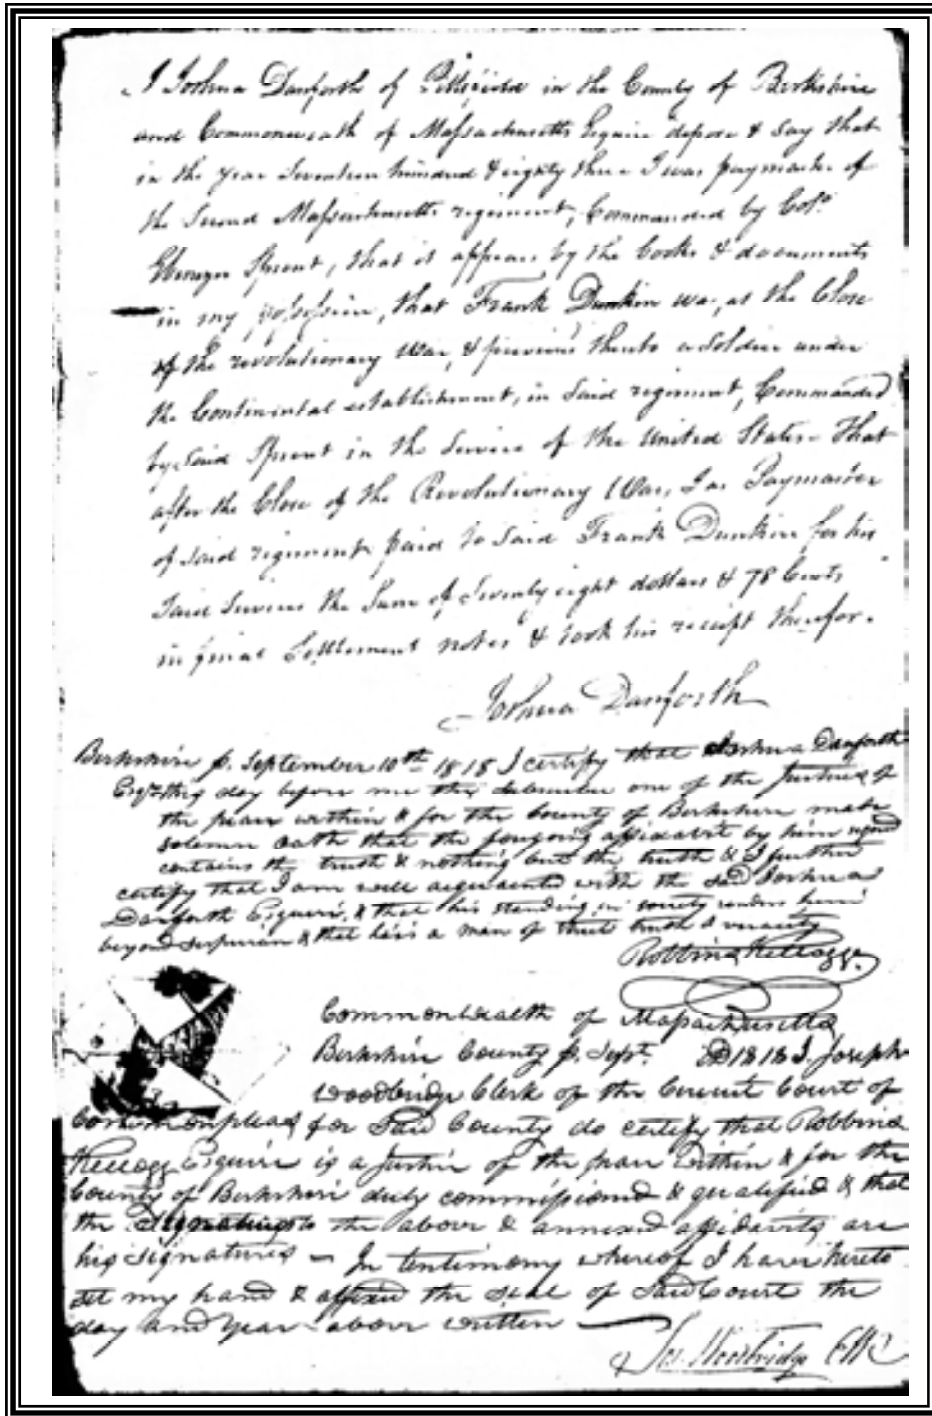 I Joshua Danforth of Pittsfield in the County of Berkshire
and Commonwealth of Massachusetts Esquire depose & say that
in the year Seventeen hundred & eighty three I was paymaster of
the Second Massachusetts regiment, Commanded by Colo
Ebenezer Sprout, that it appears by the books & documents
in my possession, that Frank Dunkin was, at the Close
of the revolutionary War, & previous thereto a Soldier under
the Continental establishment, in Said regiment, Commanded
by Said Sprout in the Service of the United States. That
after the Close of the Revolutionary War, I as Paymaster
of Said regiment paid to Said Frank Dunkin for his
Said Services the Sum of Seventy eight dollars & 78 Cents
in final Settlement notes & took his receipt therefor.
Joshua Danforth
Berkshire ss. September 10th 1818 I certify that Joshua Danforth
Esqr this day before me the subscriber one of the Justices of
the peace within & for the County of Berkshire made
solemn oath that the foregoing affidavit by him signed
contains the truth & nothing but the truth & I further
certify that I am well acquainted with the said Joshua
Danforth Esquire, & that his standing in society renders him
beyond suspicion & that he is a man of truth & veracity
Robbins Kellogg.
Commonwealth of Massachusetts
Berkshire County ss. Sept. AD 1818 I. Joseph
Woodbridge Clerk of the Circuit Court of
Common pleas for Said County do certify that Robbins
Kellogg Esquire is a Justice of the peace within & for the
County of Berkshire duly commissioned & qualified & that
the Signatures to the above & annexed affidavits are
his signatures — In testimony whereof I have hereto
set my hand & affixed the seal of Said Court the
day and year above written
Jos. Woodbridge Clk